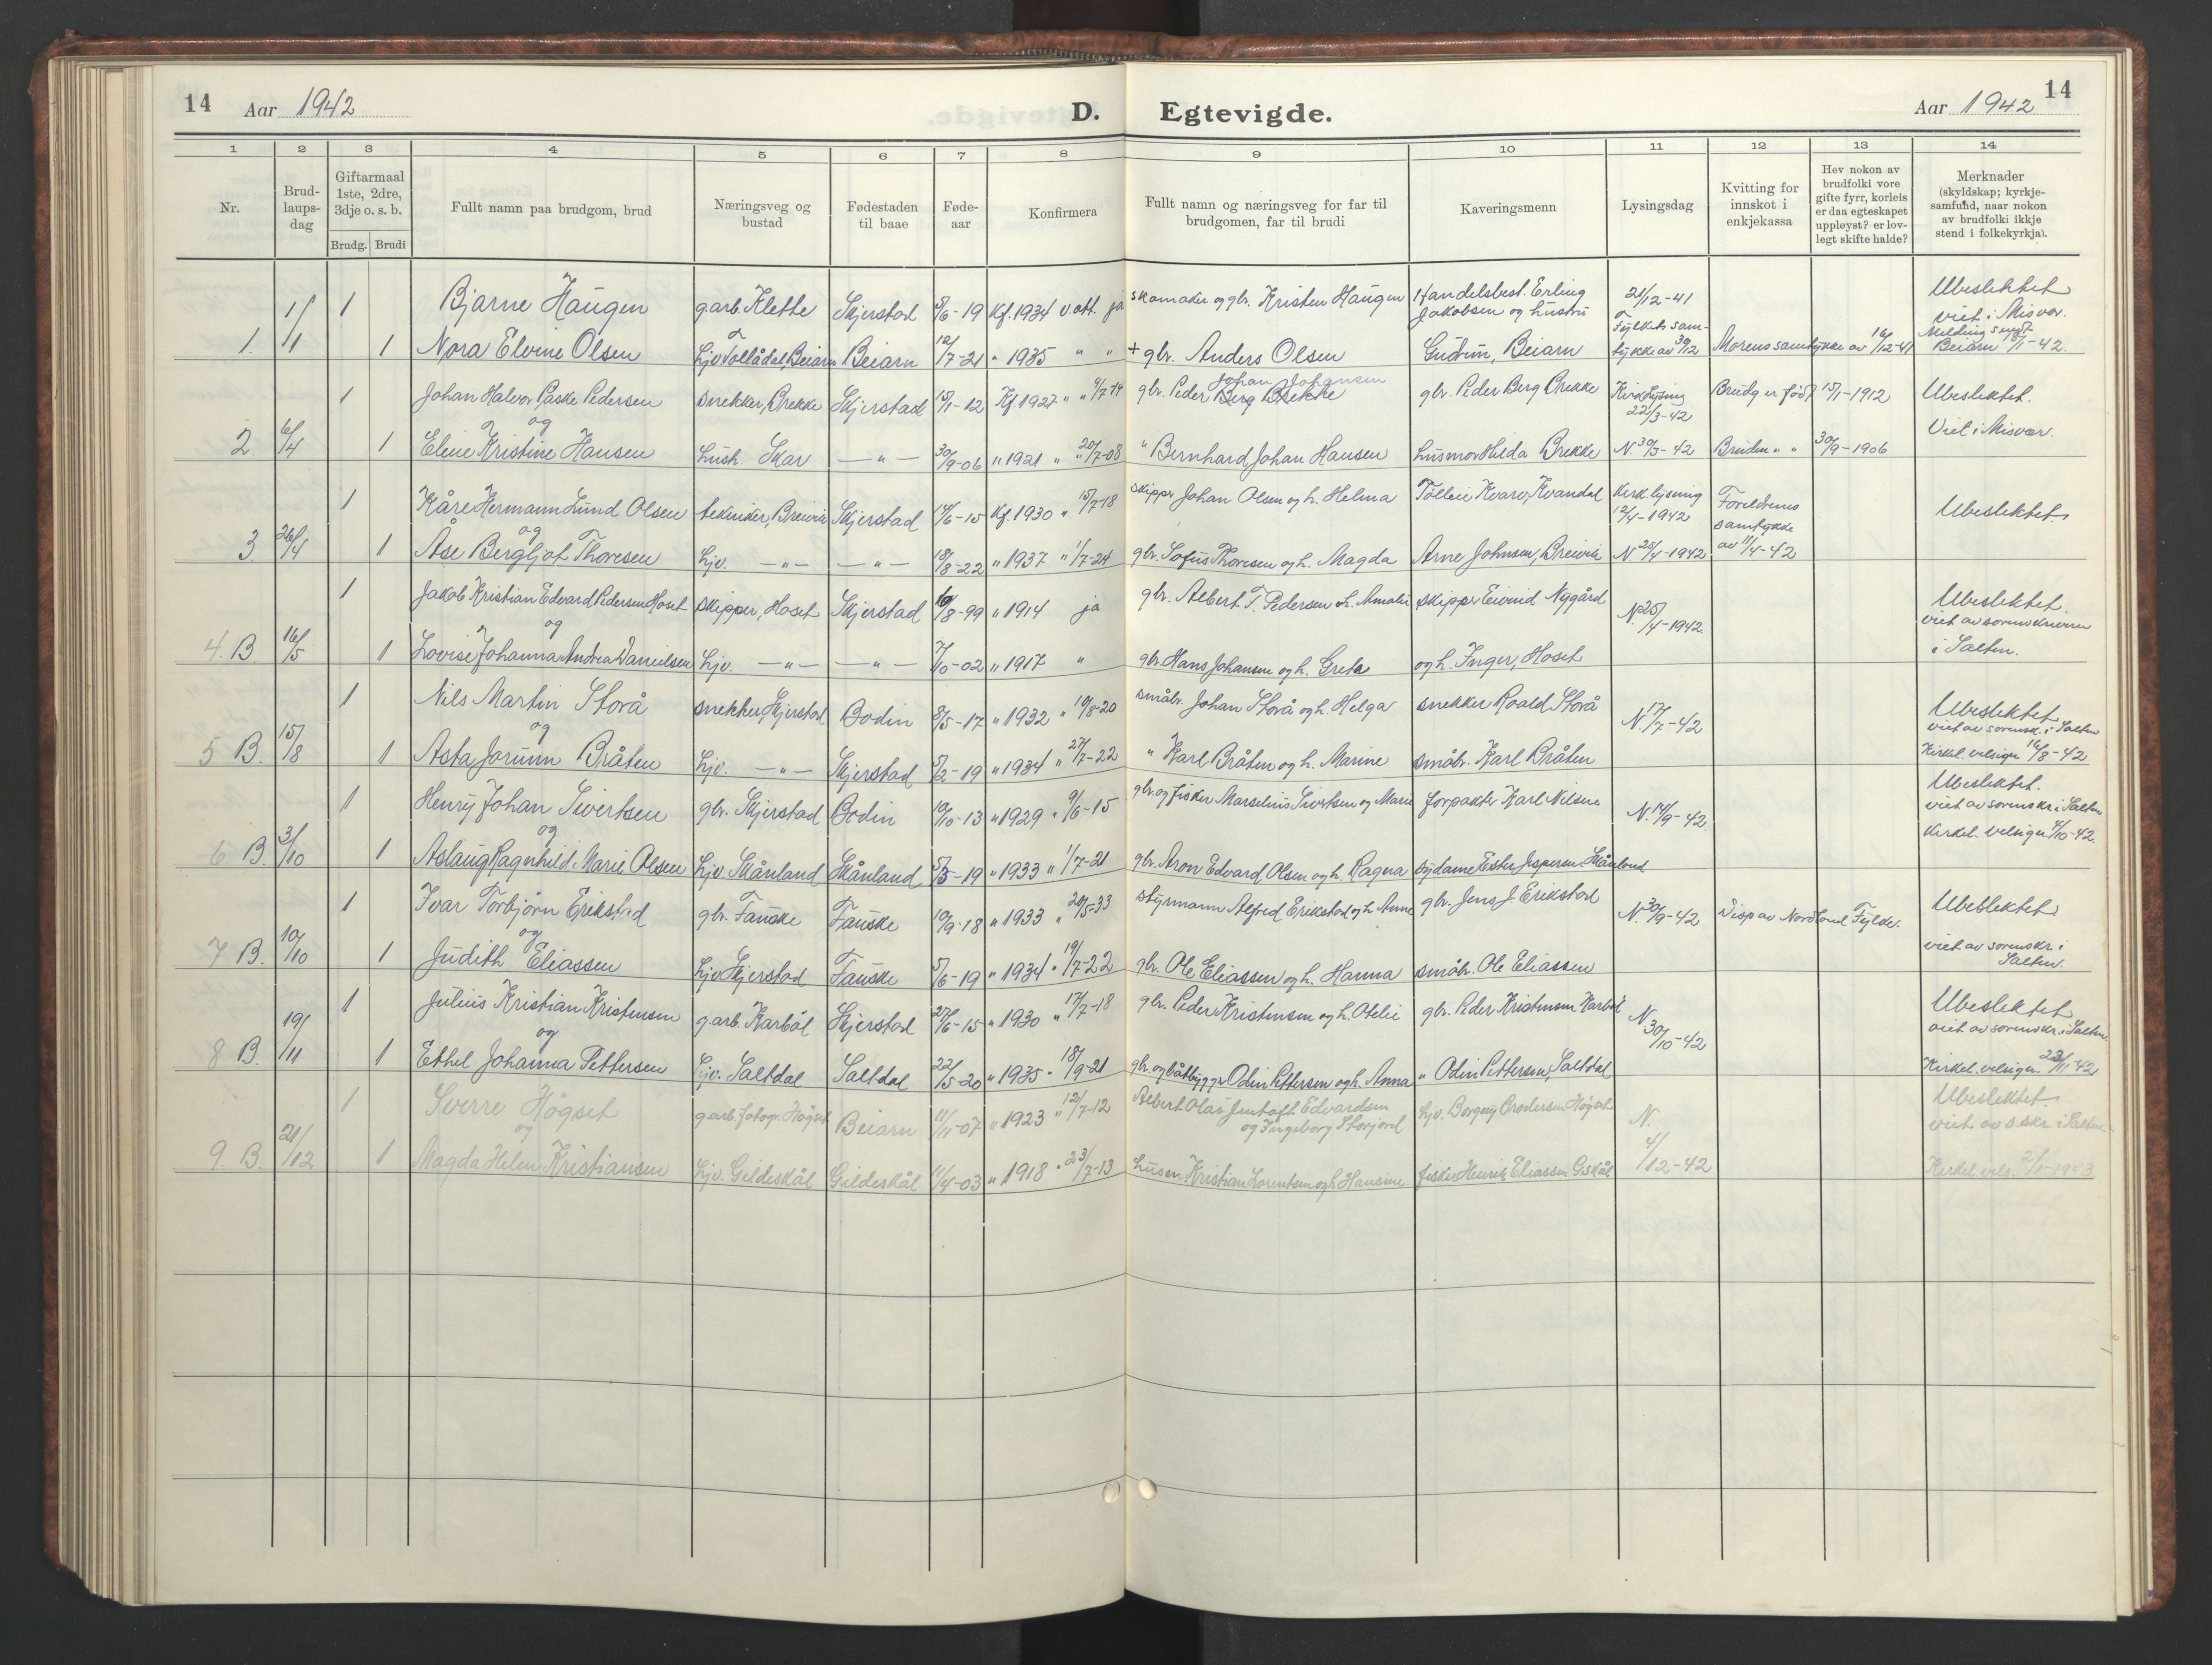 14 Aar 1942 D. Egtevigde. Aar 1942 14
1 2 3 4 5 6 7 8 9 10 11 12 13 14
Nr.
Brud-
laups-
dag
Giftarmaal
1ste, 2dre,
3dje o. s. b.
Brudg. Brudi
Fullt namn paa brudgom, brud
Næringsveg og
bustad
Fødestaden
til baae
Føde-
aar
Konfirmera
Fullt namn og næringsveg for far til
brudgomen, far til brudi
Kaveringsmenn
Lysingsdag
Kvitting for
innskot i
enkjekassa
Hev nokon av
brudfolki vore
gifte fyrr, korleis
er daa egteskapet
uppløyst? er lov-
legt skifte halde?
Merknader
(skyldskap; kyrkje-
samfund, naar nokon
av brudfolki ikkje
stend i folkekyrkja).
1 Bjarne Haugen garb. Klette Skjerstad 5/6-19 Kf. 1934 v. att. ja skomaker og gbr. Kristen Haugen Handelsbest. Erling Jakobsen og hustru 21/12-41 Ubeslektet viet i Misvær.
1. 1/1 1 Nora Elvine Olsen hjv Tollådal, Beiarn Beiarn 12/7-21 " 1935 " " + gbr. Anders Olsen Gudrun, Beiarn Fylkets samtykke av 30/12 Morens samtykke av 16/12-41 Melding sendt Beiarn 8/1-42.
1 Johan Halvor Påske Pedersen snekker, Brekke Skjerstad 15/1-12 Kf. 1927 " " 9/7-14 gbr. Peder Berg Brekke Johan Johansen gbr. Peder Berg Brekke Kirk lysing 22/3-42 Brudg er født 15/1-1912 Ubeslektet.
og
2. 6/4 1 Eline Kristine Hansen hush. Skar — " — 30/9-06 " 1921 " " 20/7-08 " Bernhard Johan Hansen husmor Hilda Brekke N. 30/3-42 Bruden " " 30/9-1906 Viet i Misvær.
1 Kåre Hermann Lund Olsen tekniker, Breivik Skjerstad 14/6-15 Kf. 1930 " 15/7-18 skipper Johan Olsen og h. Helma Tølleiv Kvarv, Kvandal Kirk. lysing 12/4-1942 Foreldrenes samtykke av 11/4-42 Ubeslektet.
og
3. 26/4 1 Åse Bergljot Thoresen hjv. — " — — " — 18/8-22 " 1937 " 1/7-24 gbr. Sofus Thoresen og h. Magda Arne Johnsen, Breivik N 25/4-1942
1 Jakob Kristian Edvard Pedersen Hoset skipper, Hoset Skjerstad 10/8-99 " 1914 ja gbr. Albert T. Pedersen o. h. Amalie skipper Eivind Nygård N. 25/4-1942. Ubeslektet.
og
4. B. 16/5 1 Lovise Johanna Andrea Danielsen hjv. — " — — " — 7/10-02 " 1917 " gbr. Hans Johansen og h. Greta og h. Inger, Hoset viet av sorenskriveren i Salten.
1 Nils Martin Storå snekker, Skjerstad Bodin 8/5-17 " 1932 " 10/8-20 småbr. Johan Storå og h. Helga snekker Roald Storå N. 17/7-42 Ubeslektet
og
5 B. 15/8 1 Asta Jorunn Bråten hjv. — " — Skjerstad 5/2-19 " 1934 " 27/7-22 " Karl Bråten og h. Marine småbr. Karl Bråten viet av sorensk. i Salten Kirkel. velsigne 16/8-42
1 Henry Johan Sivertsen gbr. Skjerstad Bodin 10/10-13 " 1929 " 9/6-15 gbr. og fisker Marselius Sivertsen og Marie forpakter Karl Nilsen N. 14/9-42 Ubeslektet.
og
6 B. 3/10 1 Aslaug Ragnhild Marie Olsen hjv Skånland Skånland 5/5-19 " 1933 " 1/7-21 gbr. Aron Edvard Olsen og h. Ragna sydame Ester Jespersen Skånland viet av sorenskr i Salten Kirkel. velsigne 4/10-42.
1 Ivar Torbjørn Erikstad gbr. Fauske Fauske 10/9-18 " 1933 " 20/5-33 styrmann Alfred Erikstad og h Anne gbr. Jens J. Erikstad N. 30/9-42 Disp av Nordland Fylke. Ubeslektet
og
7 B. 10/10 1 Judith Eliassen hjv Skjerstad Fauske 5/6-19 " 1934 " 19/7-22 gbr. Ole Eliassen og h. Hanna småbr. Ole Eliassen viet av sorenskr. i Salten.
1 Julius Kristian Kristensen garb. Karbøl Skjerstad 27/6-15 " 1930 " 17/7-18 gbr. Peder Kristensen og h. Otelie gbr. Peder Kristensen Karbøl N. 30/10-42 Ubeslektet
og
8 B. 19/11 1 Ethel Johanna Pettersen hjv. Saltdal Saltdal 22/5-20 " 1935 " 18/9-21 gbr. og båtbygger Odin Pettersen og h. Anna " Odin Pettersen, Saltdal viet av sorenskr. i Salten Kirkel. velsigne. 23/11-42
1 Sverre Høgset garb. fotogr. Høgset Beiarn 11/11-07 " 1923 " 12/7-12 Albert Olai Jentoft Edvardsen og Ingeborg Storjord hjv. Borgny Brodersen Høgset N. 4/12-42 Ubeslektet.
og
9. B. 21/12 1 Magda Helen Kristiansen hjv. Gildeskål Gildeskål 11/4-03 " 1918 " 23/7-13 husen Kristian Lorentsen og h Hansine fisker Henrik Eliassen G.skål viet av s.skr. i Salten Kirkel. vels. 2/1-1943